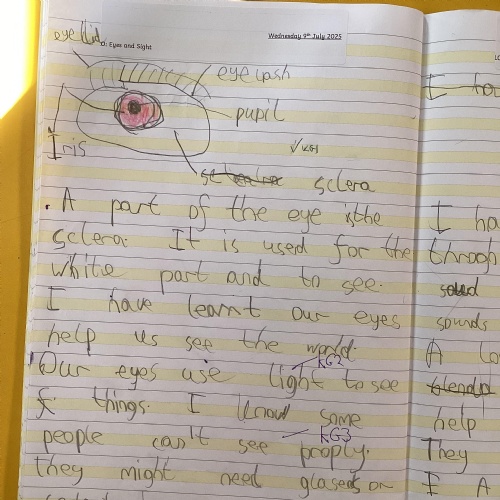 Wednesday 9th July 2025
LO: Eyes and Sight
eyellid
eyelash
pupil
Iris
✓ KG1
sclera
. A part of the eye isthe
sclera. It is used for the
whitie part and to see.
I have learnt our eyes
help us see the world
KG2
Our eyes use light to see
things. I know some
KG3
people can't see proply.
they might need glases or
I
I ha
throogh
sounds
A lo
help
They
I A